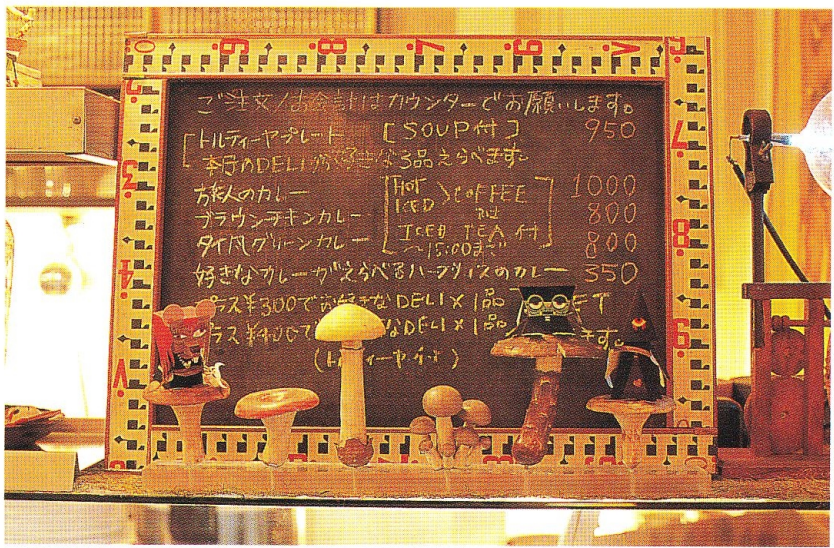 ご注文/お会計はカウンターでお願いします。
トルティーヤプレート [SOUP付] 950
本日のDELIお好きな3品えらべます
旅人のカレー 1000
ブラウンチキンカレー 800
タイ風グリーンカレー 800
HOT
ICED >COFFEE
又は
ICED TEA 付
〜15:00まで
好きなカレーがえらべるハーフサイズのカレー 350
プラス¥300でお好きなDELI×1品
プラス¥400で なDELI×1品